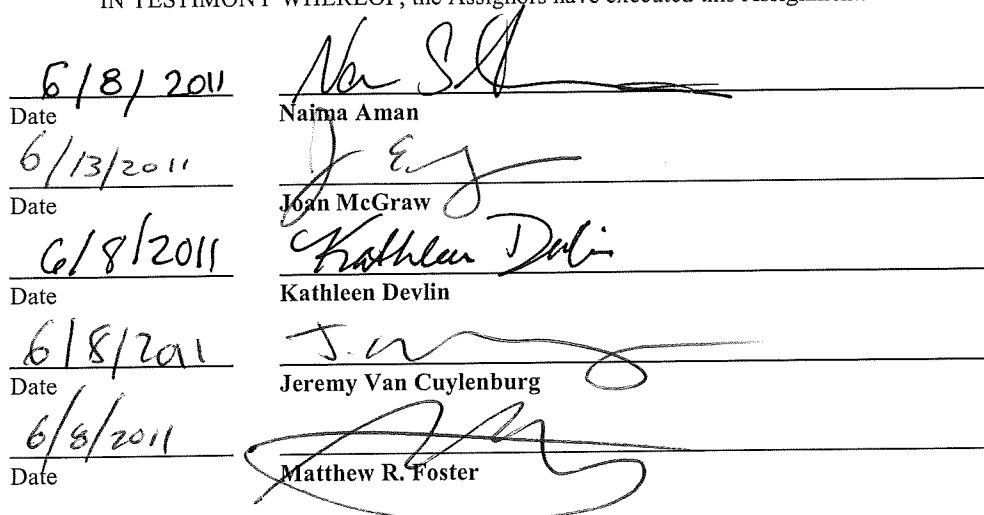 IN TESTIMONY WHEREOF, the Assignors have executed this Assignment.
6/8/2011
Date Naima Aman
6/13/2011
Date Joan McGraw
6/8/2011 Kathleen Devlin
Date Kathleen Devlin
6/8/2011 J.
Date Jeremy Van Cuylenburg
6/8/2011
Date Matthew R. Foster